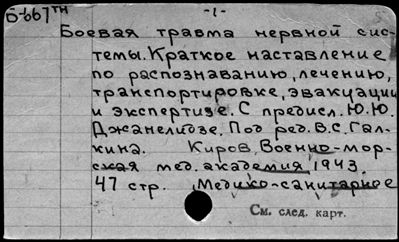 Б-667ТН
-1-
Боевая травма нервной сис-
темы. Краткое наставление
по распознаванию, лечению,
транспортировке, эвакуации
и экспертизе. С предисл. Ю.Ю.
Джанелидзе. Под ред. В.С. Гал-
кина. Киров, Военно-мор-
ская мед. академия, 1943.
47 стр. (Медико-санитарное
См. след. карт.